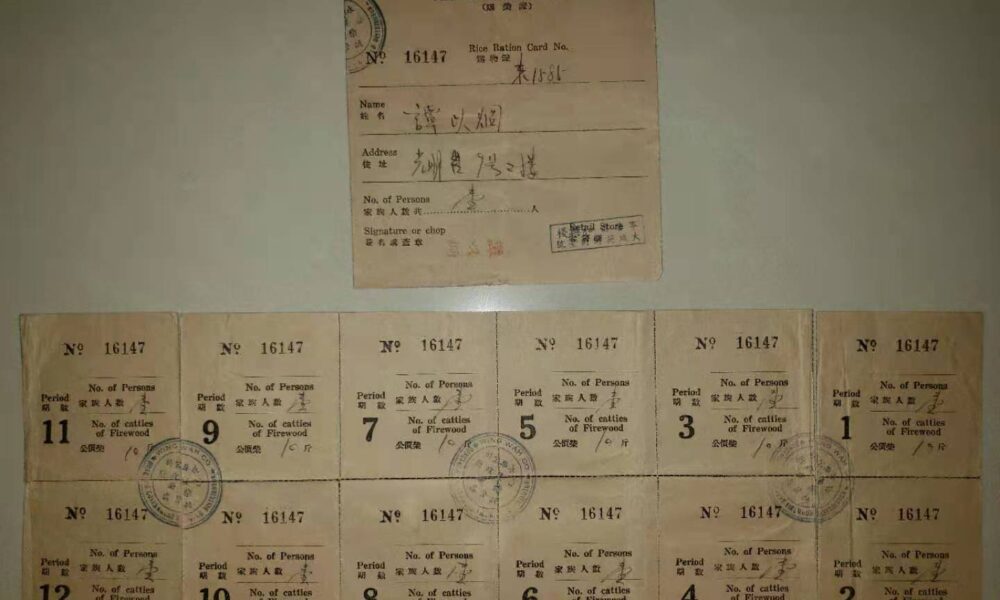 Nº 16147
Rice Ration Card No.
購物證
來1585
Name
姓名
譚以
Address
住址
光明
No. of Persons 壹
家族人數共..........人
Signature or chop
簽名或蓋章
Retail Store
Nº 16147
No. of Persons
Period 家族人數 壹
期數
11
No. of catties
of Firewood
公價柴 10
Nº 16147
No. of Persons
Period 家族人數 壹
期數
9
No. of catties
of Firewood
公價柴 10 斤
Nº 16147
No. of Persons
Period 家族人數 壹
期數
7
No. of catties
of Firewood
公價柴 10 斤
Nº 16147
No. of Persons
Period 家族人數 壹
期數
5
No. of catties
of Firewood
公價柴 10 斤
Nº 16147
No. of Persons
Period 家族人數 壹
期數
3
No. of catties
of Firewood
公價柴 10 斤
Nº 16147
No. of Persons
Period 家族人數 壹
期數
1
No. of catties
of Firewood
公價柴 斤
Nº 16147
No. of Persons
Period 家族人數 壹
期數
12
No. of catties
of Firewood
Nº 16147
No. of Persons
Period 家族人數 壹
期數
10
No. of catties
of Firewood
Nº 16147
No. of Persons
Period 家族人數 壹
期數
8
No. of catties
of Firewood
Nº 16147
No. of Persons
Period 家族人數 壹
期數
6
No. of catties
of Firewood
Nº 16147
No. of Persons
Period 家族人數 壹
期數
4
No. of catties
of Firewood
Nº 16147
No. of Persons
Period 家族人數 壹
期數
2
No. of catties
of Firewood